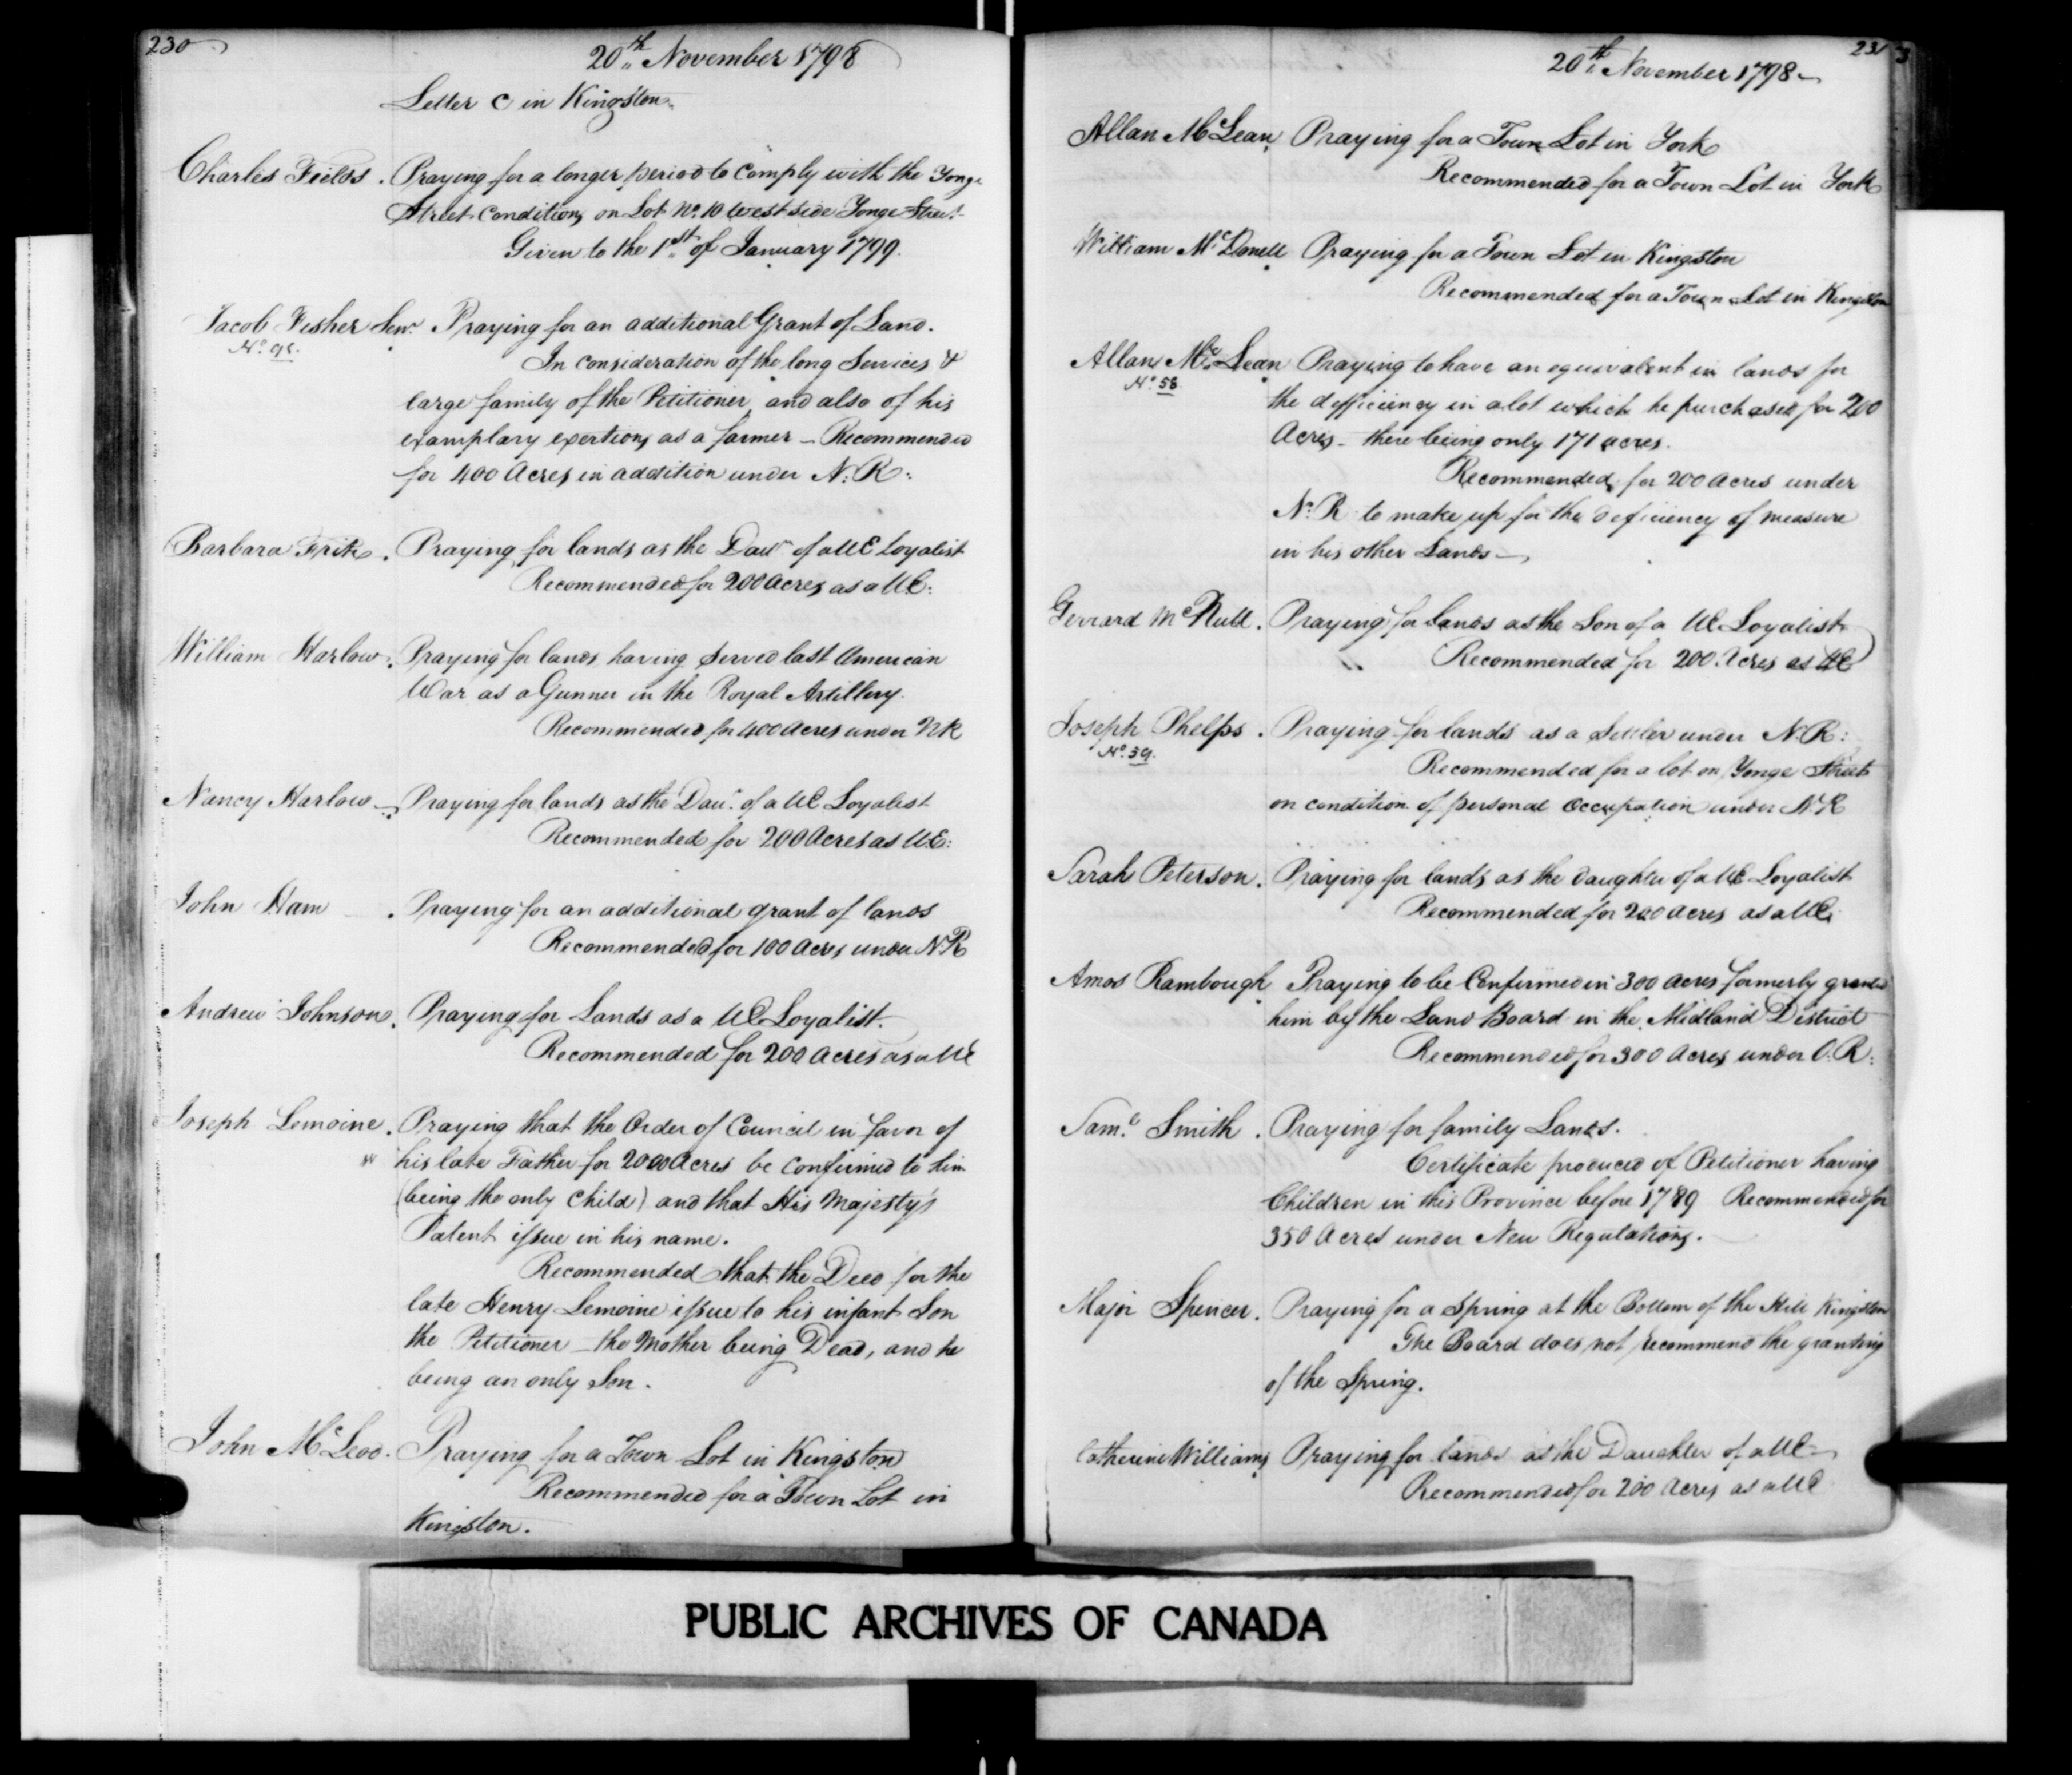 230
20th November 1798
Letter C in Kingston.
Charles Fields. Praying for a longer period to Comply with the Yonge
Street Conditions on Lot No. 10 West side Yonge Street
Given to the 1st of January 1799.
Jacob Fisher Senr. Praying for an additional Grant of Land.
No.
In consideration of the long Services &
large family of the Petitioner and also of his
examplary exertions as a farmer – Recommended
for 400 Acres in addition under N: R:
Barbara Frits. Praying for lands as the Daur. of a UE Loyalist
Recommended for 200 Acres as a UE:
William Harlow. Praying for lands having Served last American
War as a Gunner in the Royal Artillery.
Recommended for 400 Acres under NR
Nancy Harlow – Praying for lands as the Daur. of a UE Loyalist
Recommended for 200 Acres as UE:
John Ham – . Praying for an additional grant of lands
Recommended for 100 Acres under N.R
Andrew Johnson. Praying for Lands as a UE Loyalist.
Recommended for 200 Acres as a UE
Joseph Lemoine. Praying that the Order of Council in favor of
his late Father for 2000 Acres be Confirmed to him
(being the only Child) and that His Majesty's
Patent issue in his name.
Recommended that the Deed for the
late Henry Lemoine issue to his infant Son
the Petitioner – the Mother being Dead, and he
being an only Son.
John McLeod. Praying for a Town Lot in Kingston
Recommended for a Town Lot in
Kingston.
231
20th November 1798 –
Allan McLean. Praying for a Town Lot in York
Recommended for a Town Lot in York
William McDonell Praying for a Town Lot in Kingston
Recommended for a Town Lot in Kingston
Allan McLean Praying to have an equivalent in lands for
No. 58
the defficiency in a lot which he purchased for 200
Acres – there being only 171 acres.
Recommended for 200 Acres under
N. R to make up for the deficiency of measure
in his other Lands –
Gerrard McNutt. Praying for Lands as the Son of a UE Loyalist
Recommended for 200 Acres as UE
Joseph Phelps. Praying for lands as a Settler under N. R:
No. 39.
Recommended for a lot on Yonge Street
on condition of personal Occupation under N. R
Sarah Peterson. Praying for lands as the daughter of a UE Loyalist
Recommended for 200 Acres as a UE.
Amos Rambough Praying to be Confirmed in 300 Acres formerly granted
him by the Land Board in the Midland District
Recommended for 300 Acres under O. R:
Saml. Smith. Praying for family Lands.
Certificate produced of Petitioner having
Children in this Province before 1789 Recommended for
350 Acres under New Regulations.
Major Spencer. Praying for a Spring at the Bottom of the Hill Kingston
The Board does not recommend the granting
of the Spring.
Catherine Williams Praying for lands as the Daughter of a UE –
Recommended for 200 Acres as a UE
PUBLIC ARCHIVES OF CANADA